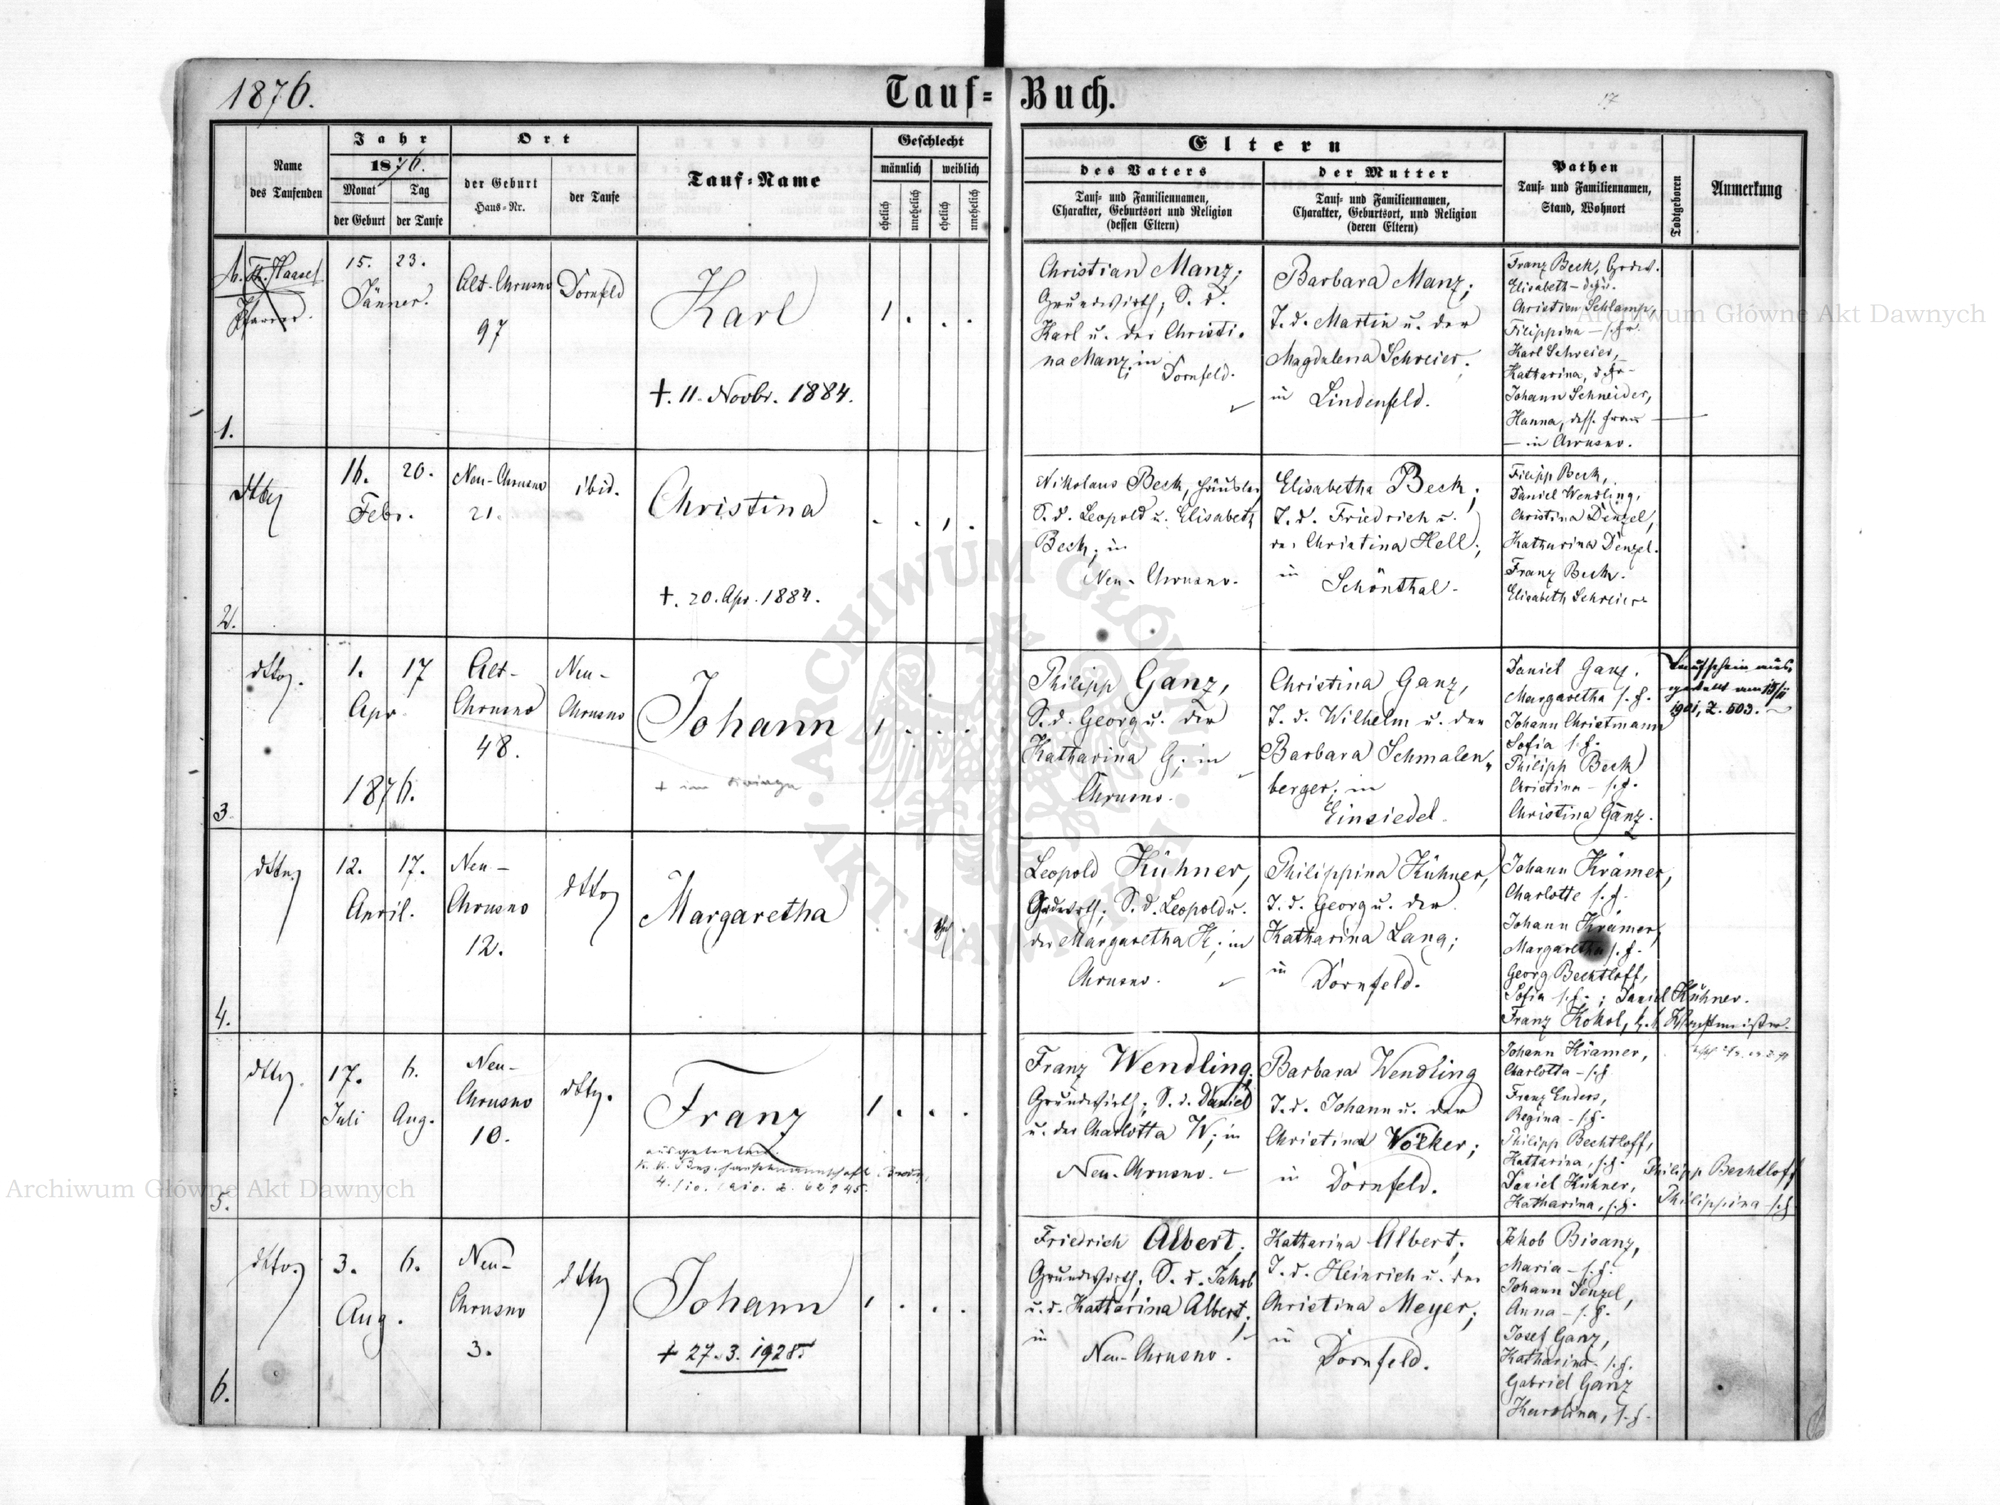 1876.
Tauf-Buch.
17
Name
des Taufenden
Jahr
1876.
Monat
der Geburt
Tag
der Taufe
Ort
der Geburt
Haus-Nr.
der Taufe
Tauf-Name
Geschlecht
männlich
weiblich
ehelich
unehelich
ehelich
unehelich
Eltern
des Vaters
Tauf- und Familiennamen,
Charakter, Geburtsort und Religion
(dessen Eltern)
der Mutter
Tauf- und Familiennamen,
Charakter, Geburtsort, und Religion
(deren Eltern)
Pathen
Tauf- und Familiennamen,
Stand, Wohnort
Todtgeboren
Anmerkung
1.
Haase
Pfarrer.
15. 23.
Jänner.
Alt-Chrusno
97
Dornfeld
Karl
+. 11. Novbr. 1884.
1 . . .
Christian Manz;
Grundwirth, S. d.
Karl u. der Christi-
na Manz; in
Dornfeld.
Barbara Manz;
T. d. Martin u. der
Magdalena Schreier;
in Lindenfeld.
Franz Beck,
Elisabeth
Christian Schlamp,
Filippina
Karl Schreier,
Katharina,
Johann Schneider,
Hanna, dess. Frau
in Chrusno.
2.
dtto
16. 20.
Febr.
Neu-Chrusno
21.
ibid.
Christina
+. 20. Apr. 1884.
. . 1 .
Nikolaus Beck, Häusler,
S. d. Leopold u. Elisabeth
Beck; in
Neu-Chrusno.
Elisabetha Beck;
T. d. Friedrich u.
Christina Hell;
in Schönthal.
Filipp Beck,
Daniel Wendling,
Christina Denzel,
Katharina Denzel.
Franz Beck.
Elisabeth Schreier
3.
dtto.
1. 17
Apr.
1876.
Alt-
Chrusno
48.
Neu-
Chrusno
Johann
+ im Kriege
1 . . .
Philipp Ganz,
S. d. Georg u. der
Katharina G; in
Chrusno.
Christina Ganz,
T. d. Wilhelm u. der
Barbara Schmalen-
berger; in
Einsiedel.
Daniel Ganz,
Margaretha s. f.
Johann Christmann
Sofia s. f.
Philipp Beck
Christina – s. f.
Christina Ganz.
Taufschein aus
gestellt am
1901, Z. 503.
4.
dtto
12. 17.
April.
Neu-
Chrusno
12.
dtto
Margaretha
Leopold Kühner,
Grdwrth; S. d. Leopold u.
der Margaretha K; in
Chrusno.
Philippina Kühner,
T. d. Georg u. der
Katharina Lang;
in Dornfeld.
Johann Krämer,
Charlotte s. f.
Johann Krämer,
Margaretha s. f.
Georg Bechtloff,
Sofia s. f.; Daniel Kühner.
Franz Kokol, k. k. Wachtmeister.
5.
dtto.
17. 6.
Juli Aug.
Neu-
Chrusno
10.
dtto.
Franz
ausgetreten
k. k. Bez. hauptmannschaft
1 . . .
Franz Wendling,
Grundwirth; S. d. Daniel
u. der Charlotta W; in
Neu-Chrusno.
Barbara Wendling
T. d. Johann u. der
Christina Völker;
in Dornfeld.
Johann Krämer,
Charlotta – s. f.
Franz Enders,
Regina – s. f.
Philipp Bechtloff,
Katharina, s. f.
Daniel Kühner,
Katharina, s. f.
Philipp Bechtloff
Philippina s. f.
6.
dtto.
3. 6.
Aug.
Neu-
Chrusno
3.
dtto
Johann
+ 27. 3. 1928.
1 . . .
Friedrich Albert;
Grundwirth; S. d. Jakob
u. d. Katharina Albert;
in
Neu-Chrusno.
Katharina Albert;
T. d. Heinrich u. der
Christina Meyer;
in
Dornfeld.
Jakob Bisanz,
Maria – s. f.
Johann Denzel,
Anna – s. f.
Josef Ganz,
Katharina – s. f.
Gabriel Ganz
Karolina, s. f.
Archiwum Główne Akt Dawnych
Archiwum Główne Akt Dawnych
ARCHIWUM GŁÓWNE AKT DAWNYCH